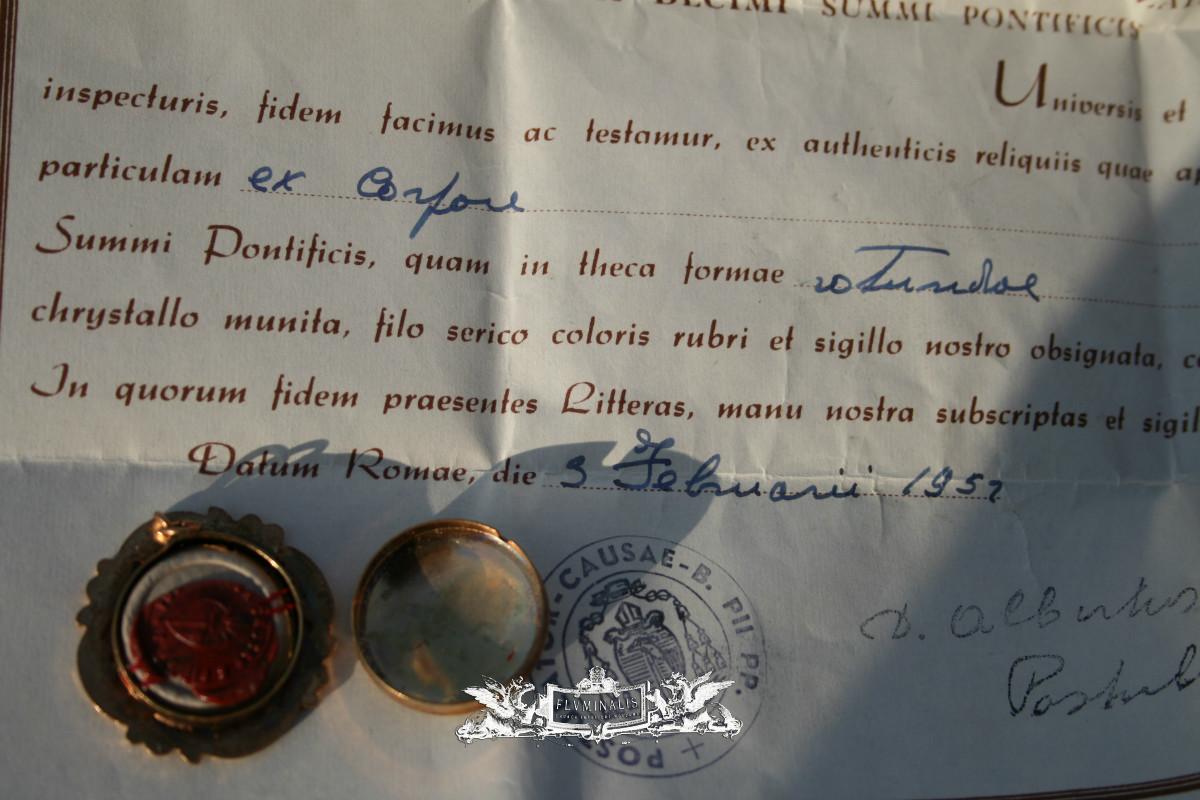 DECIMI SUMMI PONTIFICIS
Universis et
inspecturis, fidem facimus ac testamur, ex authenticis reliquiis quae
particulam ex Corpore
Summi Pontificis, quam in theca formae rotundae
chrystallo munita, filo serico coloris rubri et sigillo nostro obsignata,
In quorum fidem praesentes Litteras, manu nostra subscriptas et
Datum Romae, die 3 Februarii 1952
CAUSAE-B. PII PP.
D. Albertus
FLVMINALIS